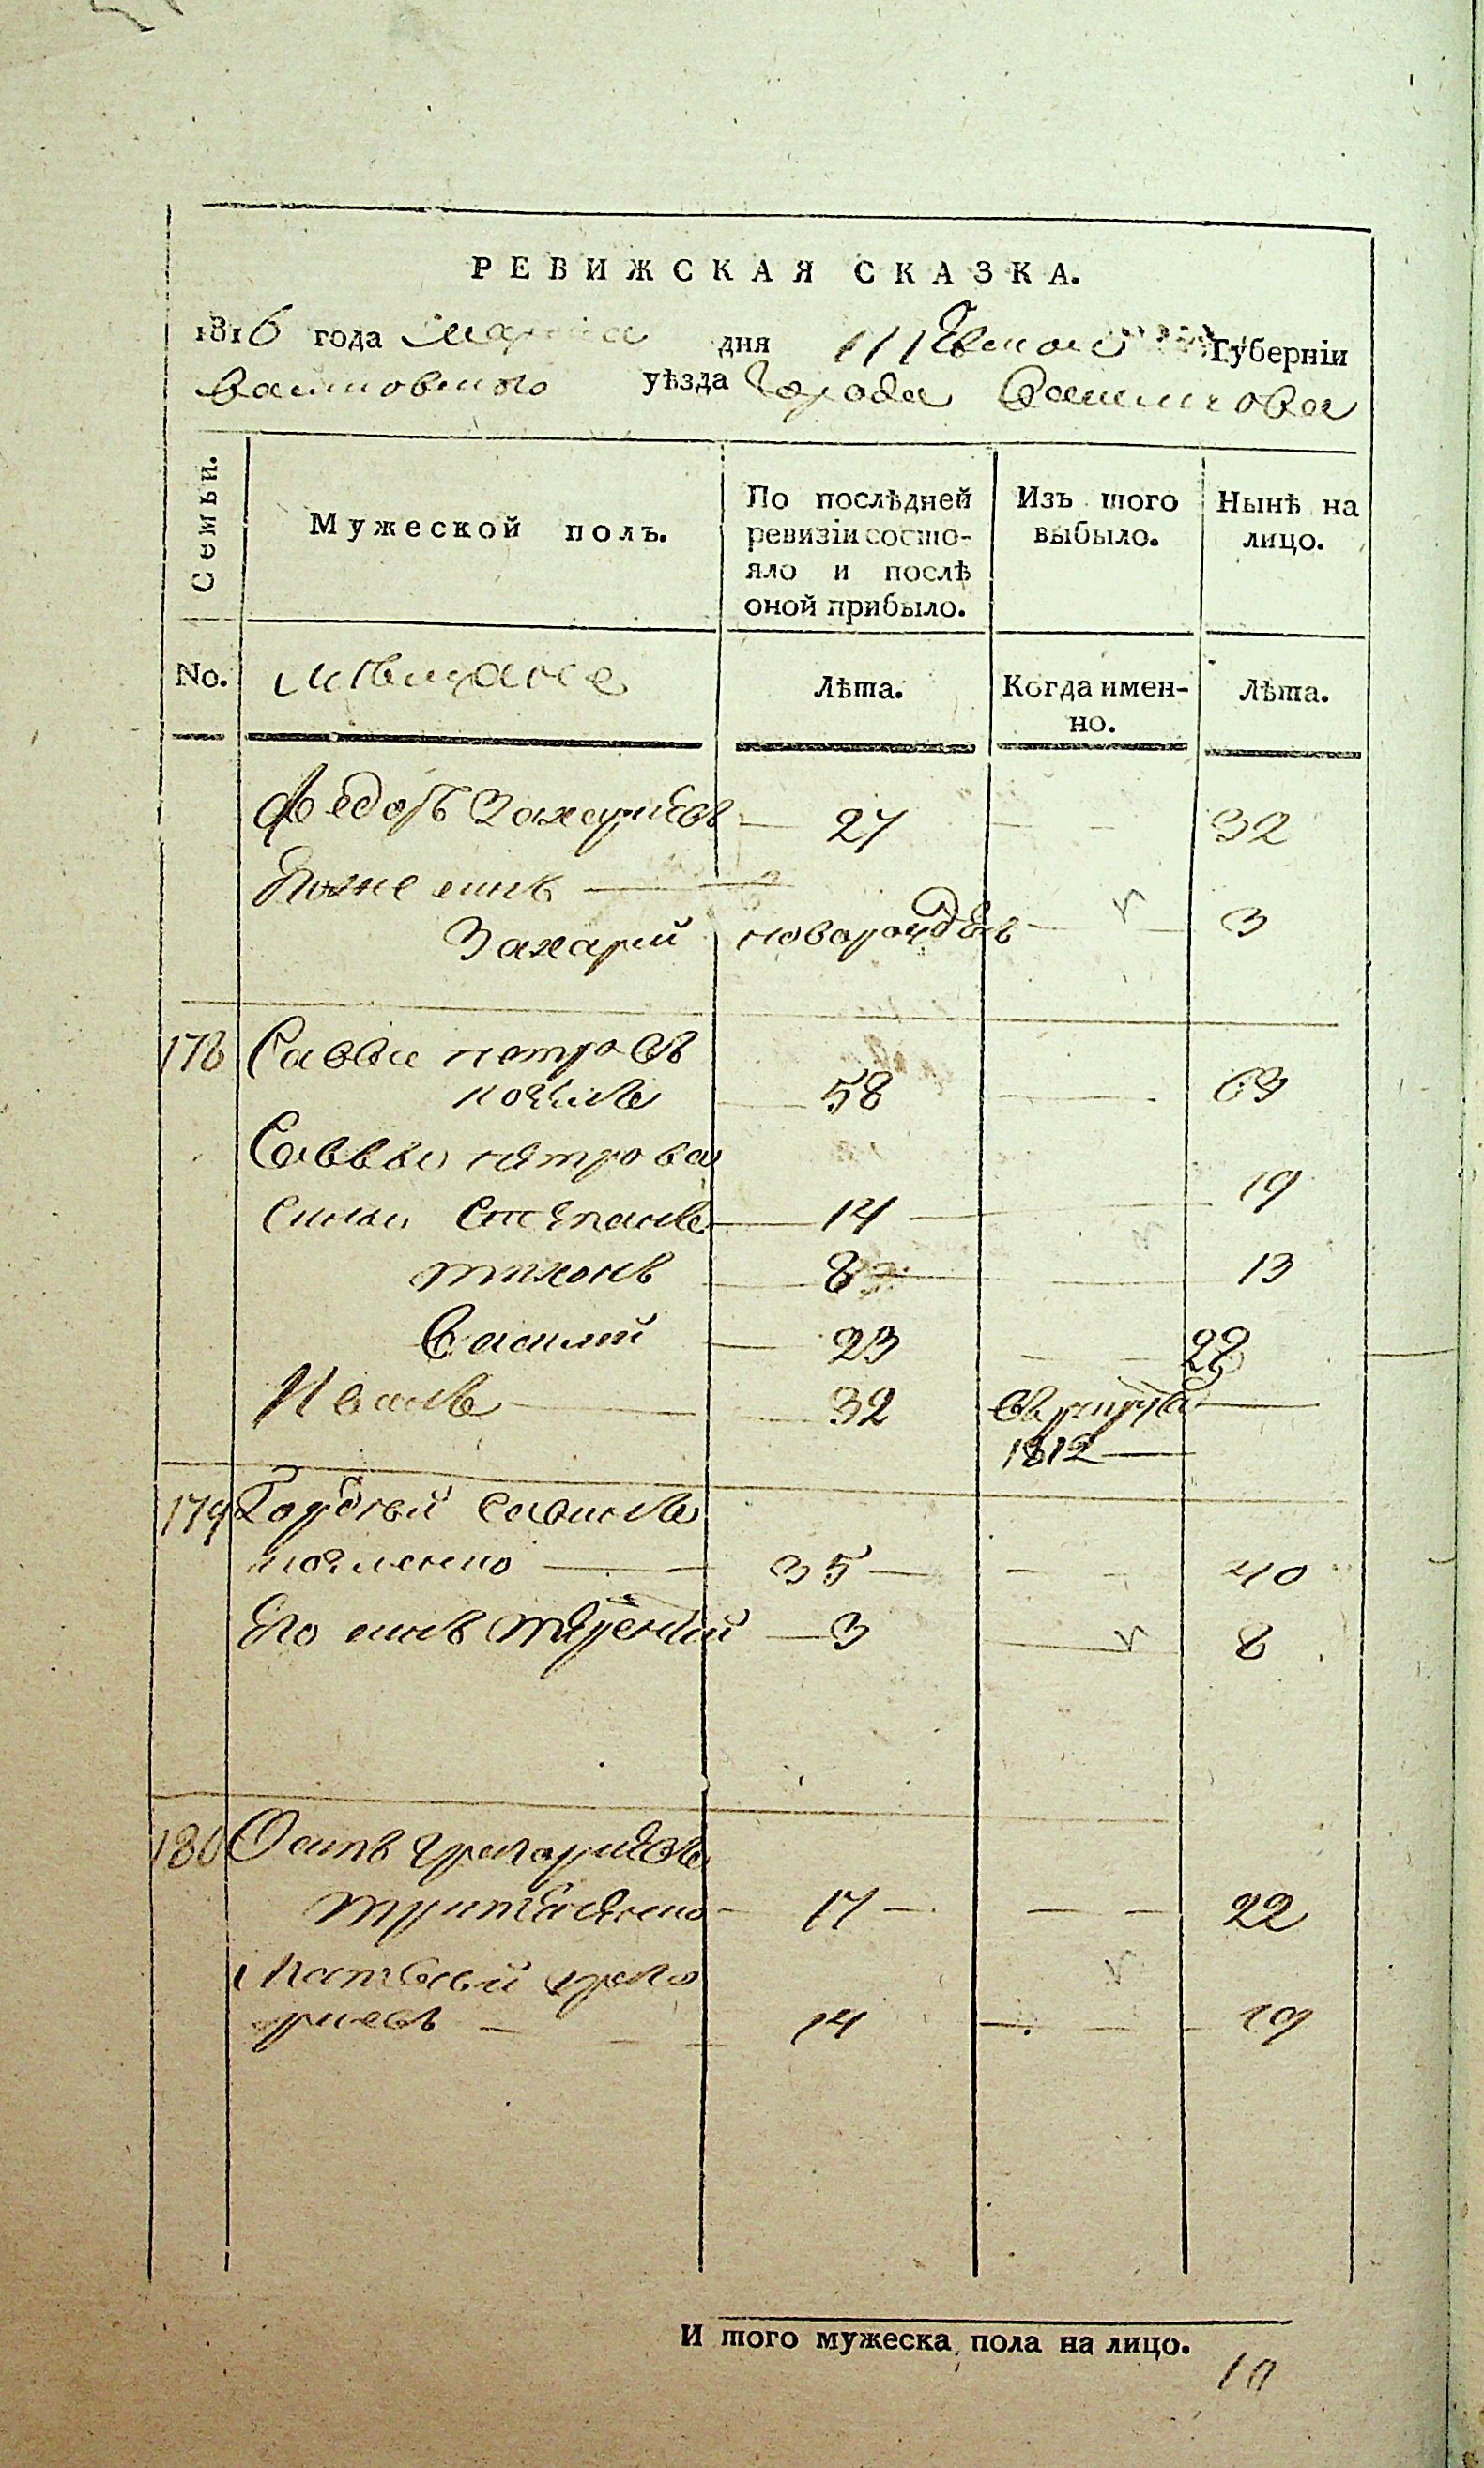 РЕВИЖСКАЯ СКАЗКА.
1816 года Марта дня Губерніи
Васильковского уѣзда Города Василькова
Семьи.
Мужеской полъ.
По послѣдней ревизіи состо-
яло и послѣ
оной прибыло.
Изъ того
выбыло.
Нынѣ на
лицо.
No.
мѣщане
Лѣта.
Когда имен-
но.
Лѣта.
Федоръ Захаріевъ 27 32
Захарий новорожденъ 3
178 Савва петровъ
58 63
Саввы петрова
сыны Степанъ 14 19
тихонъ 8 13
Василий 23 28
Иванъ 32
1812
179 Гордѣй Савинъ
35 40
Его сынъ 3 8
180 Осипъ григориевъ
17 22
Матвѣй григо
риевъ 14 19
И того мужеска пола на лицо.
10